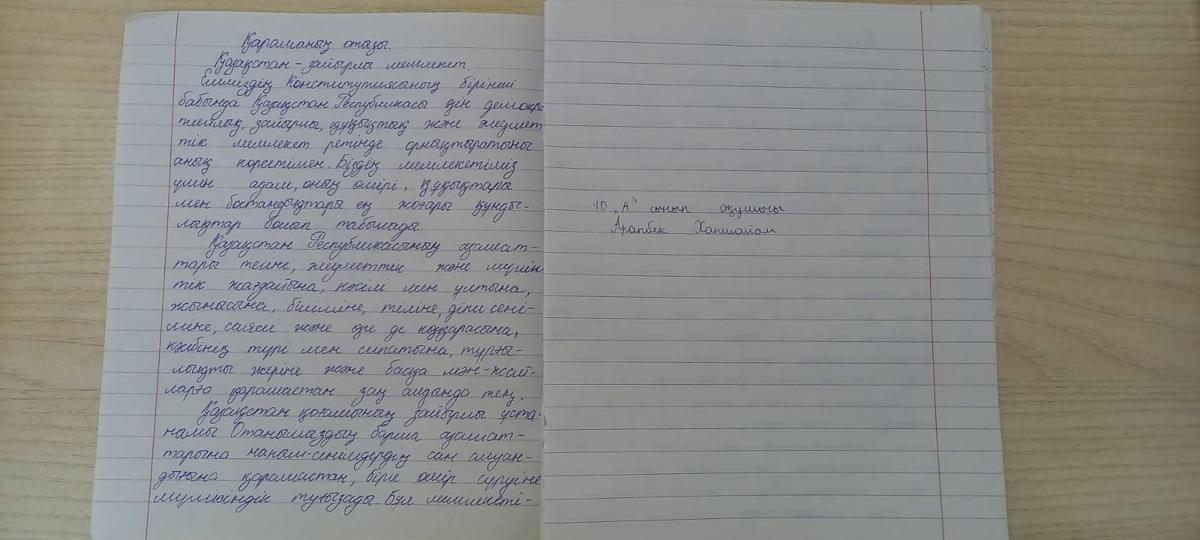 Қарашаның отызы.
Қазақстан – зайырлы мемлекет
Еліміздің Конституциясының бірінші
бабында Қазақстан Республикасы өзін демокра
тиялық, зайырлы, құқықтық және әлеумет
тік мемлекет ретінде орнықтыратыны
анық көрсетілген. Біздің мемлекетіміз
үшін адам, оның өмірі, құқықтары
мен бостандықтары ең жоғары құнды-
лықтар болып табылады.
Қазақстан Республикасының азамат-
тары тегіне, әлеуметтік және мүлік
тік жағдайына, нәсілі мен ұлтына,
жынысына, біліміне, тіліне, діни сені-
міне, саяси және өзге де көзқарасына,
кәсібінің түрі мен сипатына, тұрғы-
лықты жеріне және басқа мән-жай-
ларға қарамастан заң алдында тең.
Қазақстан қоғамының зайырлы ұста-
намы Отанымыздың барша азамат-
тарына наным-сенімдердің сан алуан-
дығына қарамастан, бірге өмір сүруіне
мүмкіндік туғызады. Бұл мемлекеті-
10 „А" сынып оқушысы
Арапбек Ханшайым